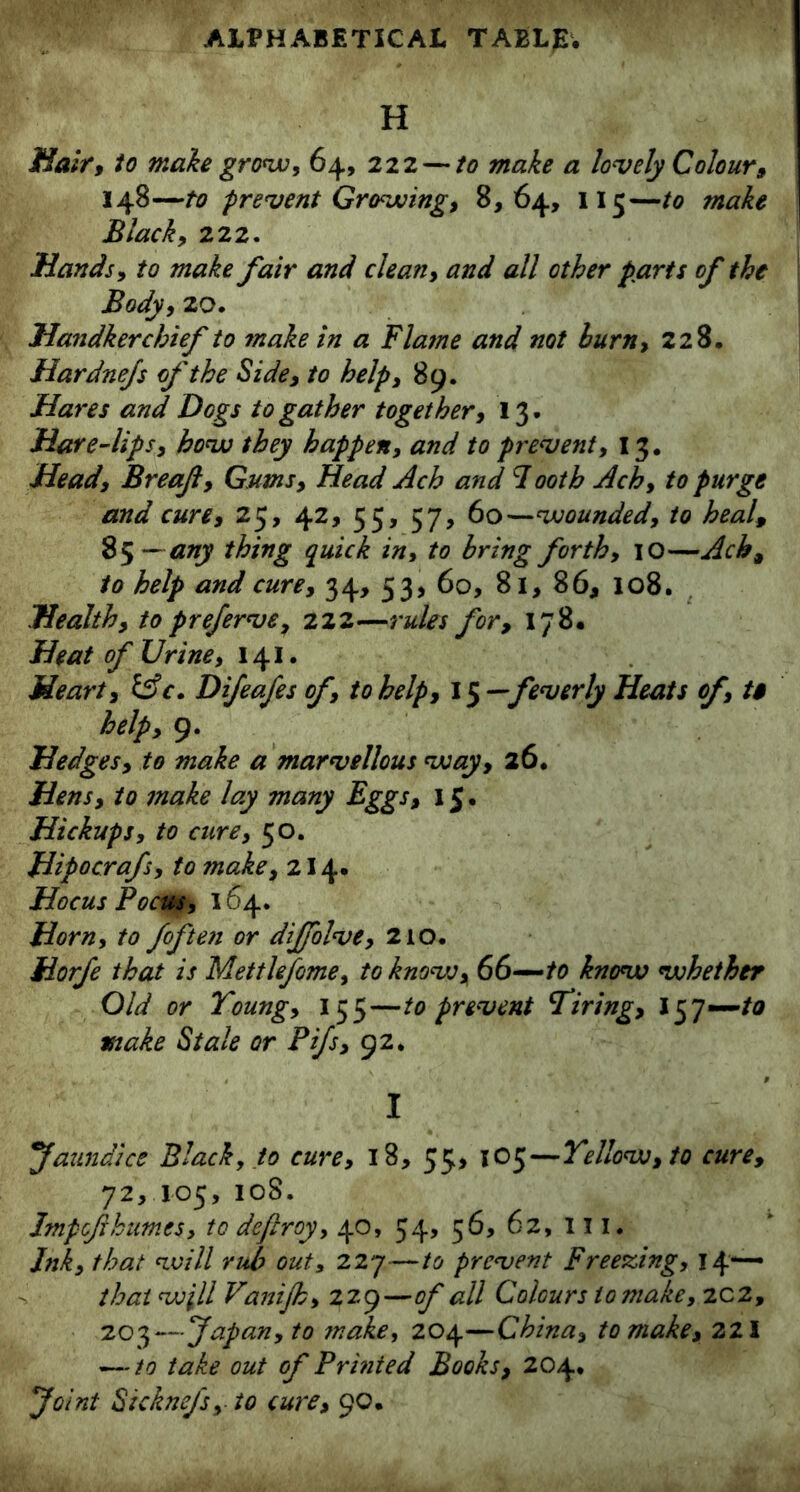 ALPHABETICAL TABLE.
H
Hair, to make grow, 64, 222—to make a lovely Colour,
148—to prevent Growing, 8, 64, 115—to make
Black, 222.
Hands, to make fair and clean, and all other parts of the
Body, 20.
Handkerchief to make in a Flame and not burn, 228.
Hardneſs of the Side, to help, 89.
Hares and Dogs to gather together, 13.
Hare-lips, how they happen, and to prevent, 13.
Head, Breaſt, Gums, Head Ach and Tooth Ach, to purge
and cure, 25, 42, 55, 57, 60—wounded, to heal,
85—any thing quick in, to bring forth, 10—Ach,
to help and cure, 34, 53, 60, 81, 86, 108.
Health, to preſerve, 222—rules for, 178.
Heat of Urine, 141.
Heart, &c. Diſeaſes of, to help, 15—feverly Heats of, to
help, 9.
Hedges, to make a marvellous way, 26.
Hens, to make lay many Eggs, 15.
Hickups, to cure, 50.
Hipocraſs, to make, 214.
Hocus Pocus, 164.
Horn, to ſoften or diſſolve, 210.
Horſe that is Mettleſome, to know, 66—to know whether
Old or Young, 155—to prevent Tiring, 157—to
make Stale or Piſs, 92.
I
Jaundice Black, to cure, 18, 55, 105—Yellow, to cure,
72, 105, 108.
Impoſthumes, to deſtroy, 40, 54, 56, 62, 111.
Ink, that will rub out, 227—to prevent Freezing, 14—
that will Vaniſh, 229—of all Colours to make, 202,
203—Japan, to make, 204—China, to make, 221
—to take out of Printed Books, 204.
Joint Sickneſs, to cure, 90.